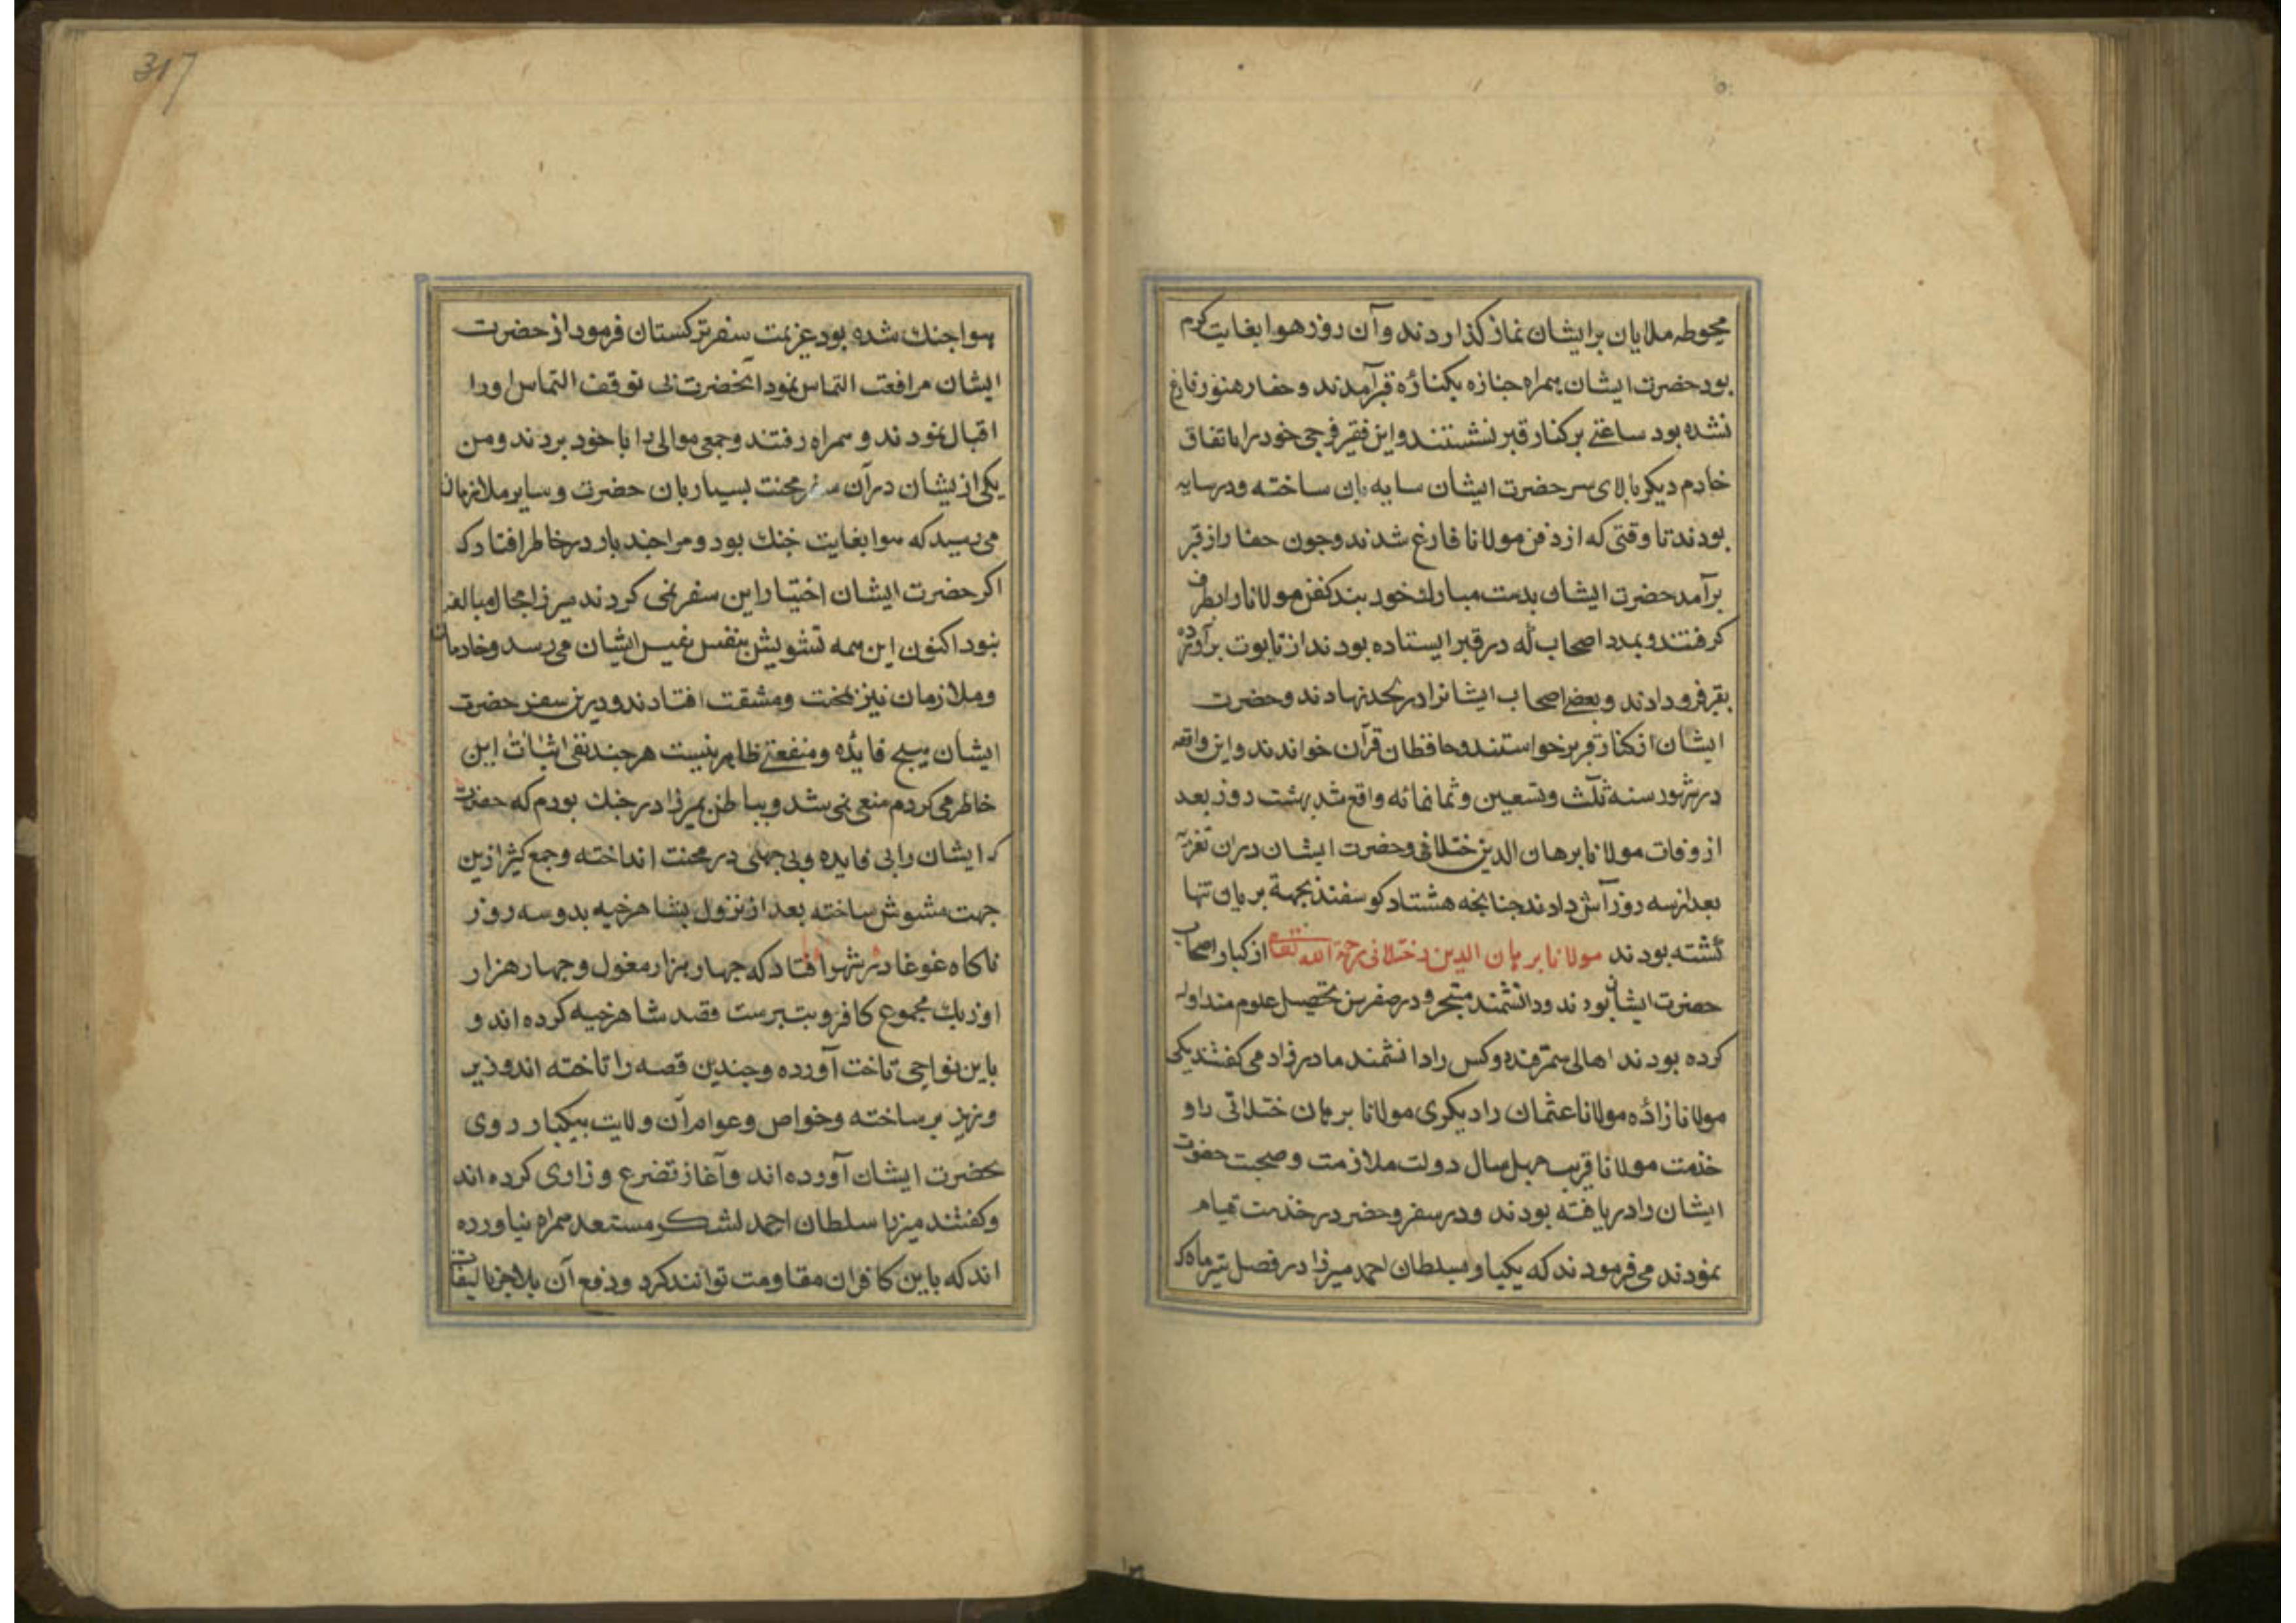 محوطه ملایان برایشان نماز کذاردند و آن روز هوا بغایت کرم
بود حضرت ایشان همراه جنازه بکنارهٔ قبر آمدند و حفار هنوز فارغ
نشده بود ساعتی بر کنار قبر نشستند و این فقیر فرجی خود را باتفاق
خادم دیکر بالای سر حضرت ایشان سایه بان ساخته و در سایه
بودند تا وقتی که از دفن مولانا فارغ شدند و چون حفار از قبر
برآمد حضرت ایشان بدست مبارك خود بند کفن مولانا را بطرف
کرفتند و بمدد اصحاب که در قبر ایستاده بودند از تابوت برآورده
بقبر فرو دادند و بعضی اصحاب ایشانرا در لحد نهادند و حضرت
ایشان از کنار قبر برخواستند و حافظان قرآن خواندند و این واقعه
در شهور سنه ثلث و تسعین و ثمانمائه واقع شد بهشت روز بعد
از وفات مولانا برهان الدین ختلانی و حضرت ایشان در ان تعزیه
بعد از سه روز آش دادند چنانچه هشتاد کوسفند بجهة بریان تنها
کشته بودند مولانا برهان الدین ختلانی رحمة الله تعالی از کبار اصحاب
حضرت ایشان بودند و دانشمند متبحر و در صغر سن تحصیل علوم متداوله
کرده بودند اهالی سمرقند دو کس را دانشمند مادرزاد می کفتند یکی
مولانا زاده مولانا عثمان را دیکری مولانا برهان ختلانی را و
خدمت مولانا قریب چهل سال دولت ملازمت و صحبت حضرت
ایشان را دریافته بودند و در سفر و حضر در خدمت قیام
نمودند می فرمودند که یکبار سلطان احمد میرزا در فصل تیرماه که
هوا خنك شده بود عزیمت سفر ترکستان فرمود از حضرت
ایشان مرافقت التماس نمود آنحضرت بی توقف التماس او را
اقبال نمودند و همراه رفتند و جمعی موالی را با خود بردند و من
یکی از یشان در آن سفر محنت بسیار بان حضرت و سایر ملازمان
می رسید که هوا بغایت خنك بود و مرا چند بار در خاطر افتاد که
اکر حضرت ایشان اختیار این سفر نمی کردند میرزا مجال مبالغه
نبود اکنون این همه تشویش بنفس نفیس ایشان می رسد و خادمان
و ملازمان نیز بمحنت و مشقت افتادند و درین سفر حضرت
ایشان هیچ فایده و منفعتی ظاهر نیست هر چند نفی اثبات این
خاطر می کردم منعی نمی شد و بباطن بمیرزا در جنك بودم که حضرت
که ایشان را بی فایده و بی جهتی در محنت انداخته و جمع کثیر ازین
جهت مشوش ساخته بعد از نزول بشاهرخیه بدو سه روز
ناکاه غوغا در شهر افتاد که چهار هزار مغول و چهار هزار
اوزبك مجموع کافر و بت پرست قصد شاهرخیه کرده اند و
باین نواحی تاخت آورده و چندین قصه را تاخته اند و زیر
و زبر ساخته و خواص و عوام آن ولایت بیکبار روی
بحضرت ایشان آورده اند و آغاز تضرع و زاری کرده اند
و کفتند میرزا سلطان احمد لشکر مستعد همراه نیاورده
اند که باین کافران مقاومت توانند کرد و دفع آن بلا جز بالتفات
317